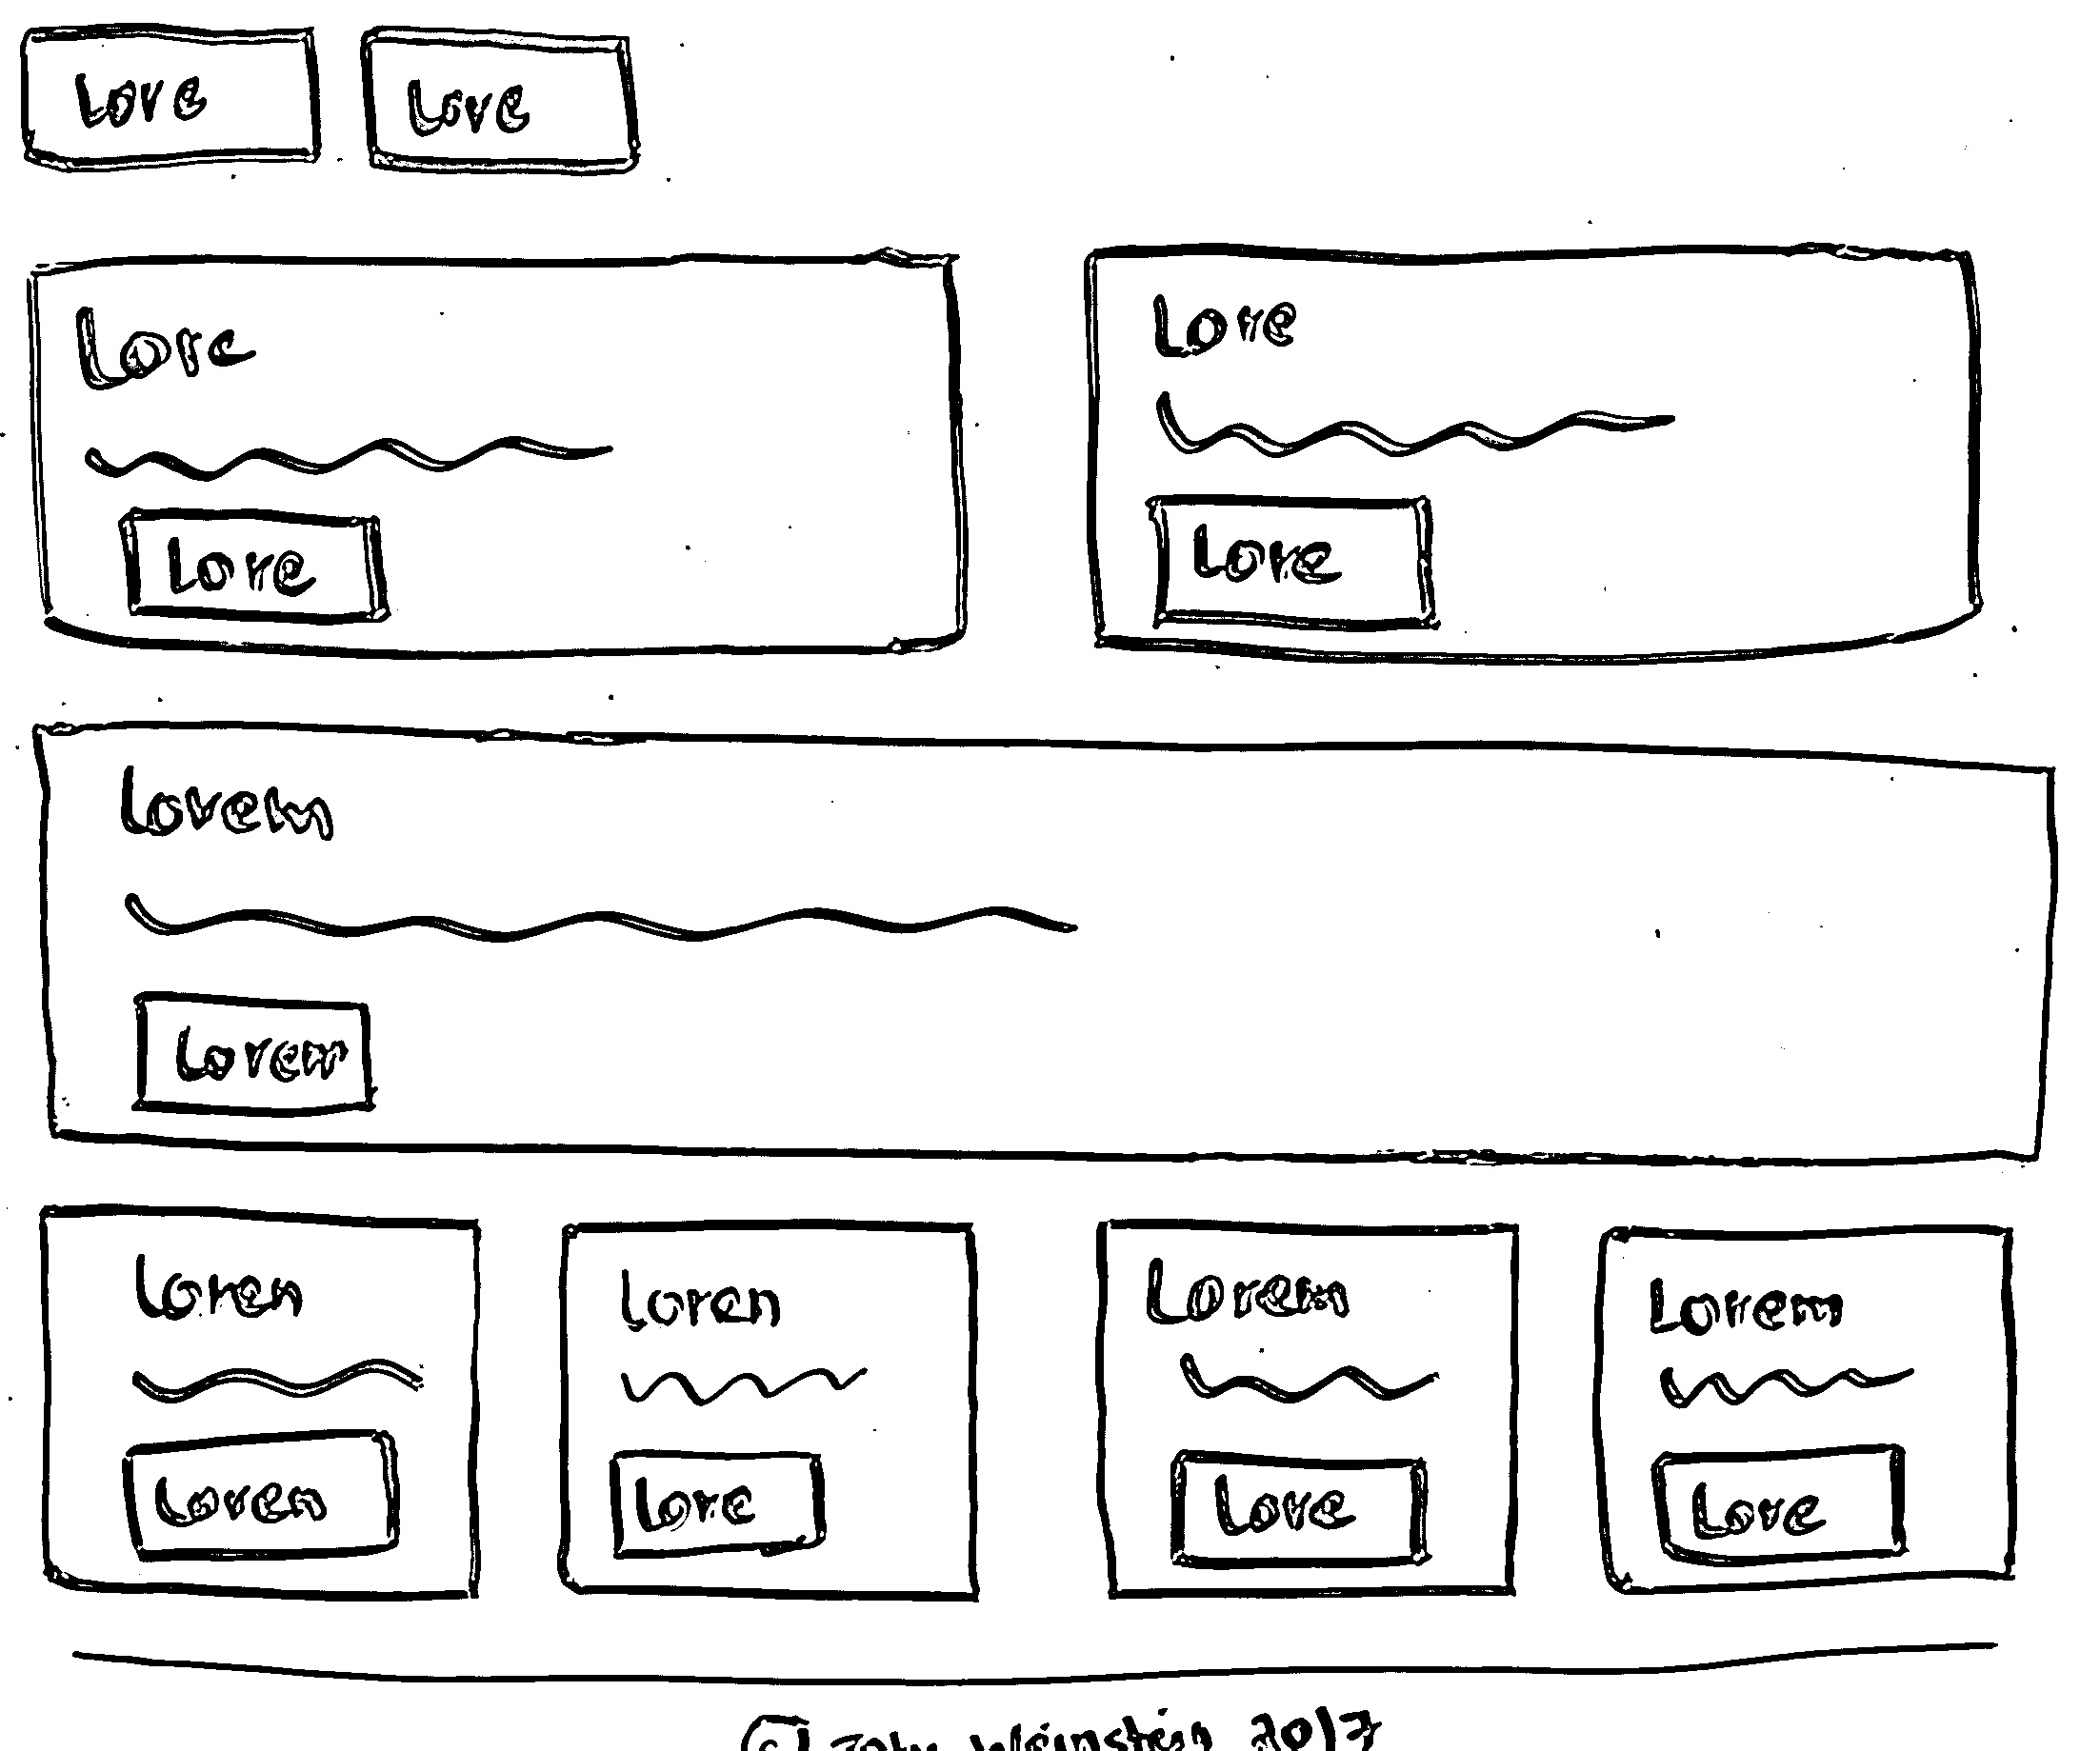 Love Love
Lore Lore
Lore Lore
Lorem
Lorem
Loren Loren Lorem Lorem
Loren Lore Love Love
© 2017